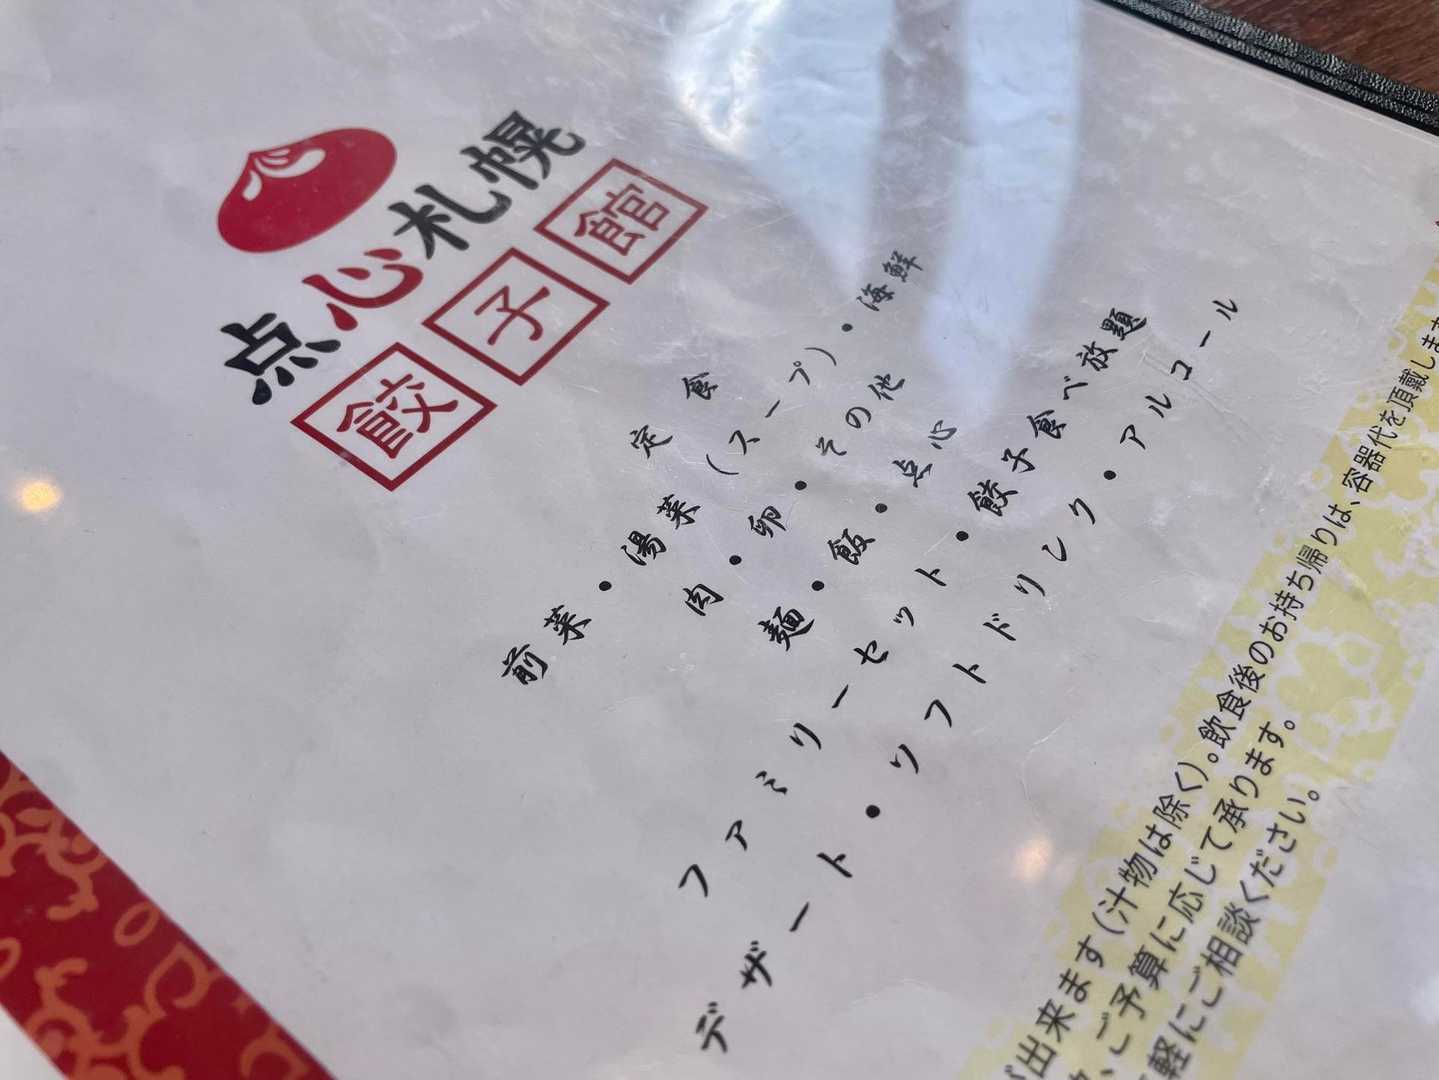 点心札幌
餃子館
定食
前菜・湯菜(スープ)・海鮮
肉・卵・その他
麺・飯・点心
ファミリーセット・餃子食べ放題
デザート・ソフトドリンク・アルコール
出来ます(汁物は除く)。飲食後のお持ち帰りは、容器代を頂戴します
、ご予算に応じて承ります。
軽にご相談ください。